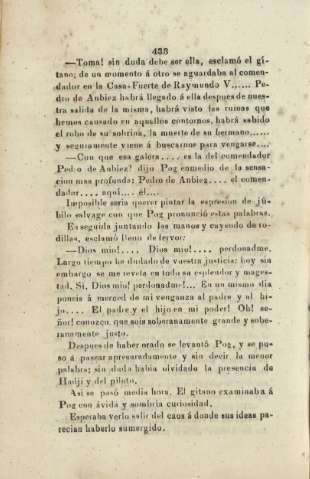 438
—Toma! sin duda debe ser ella, esclamó el gi-
tano; de un momento á otro se aguardaba al comen-
dador en la Casa-Fuerte de Raymundo V...... Pe-
dro de Anbiez habrá llegado á ella despues de nues-
tra salida de la misma, habrá visto las ruinas que
hemos causado en aquellos contornos, habrá sabido
el robo de su sobrina, la muerte de su hermano......
y seguramente viene á buscarnos para vengarse....
—Con que esa galera.... es la del comendador
Pedro de Anbiez! dijo Pog conmedio de la sensa-
cion mas profunda; Pedro de Anbiez.... el comen-
dador.... aquí.... él....
Imposible seria querer pintar la espresion de jú-
bilo salvage con que Pog pronunció estas palabras.
En seguida juntando las manos y cayendo de ro-
dillas, esclamó lleno de fervor:
—Dios mio!.... Dios mio!.... perdonadme.
Largo tiempo he dudado de vuestra justicia; hoy sin
embargo se me revela en todo su esplendor y mages-
tad. Si, Dios mio! perdonadme!... En un mismo dia
poneis á merced de mi venganza al padre y al hi-
jo.... El padre y el hijo en mi poder! Oh! se-
ñor! conozco que sois soberanamente grande y sobe-
ranamente justo.
Despues de haber orado se levantó Pog, y se pu-
so á pasear apresuradamente y sin decir la menor
palabra; sin duda habia olvidado la presencia de
Hadji y del piloto.
Asi se pasó media hora. El gitano examinaba á
Pog con ávida y sombria curiosidad.
Esperaba verlo salir del caos á donde sus ideas pa-
recian haberlo sumergido.